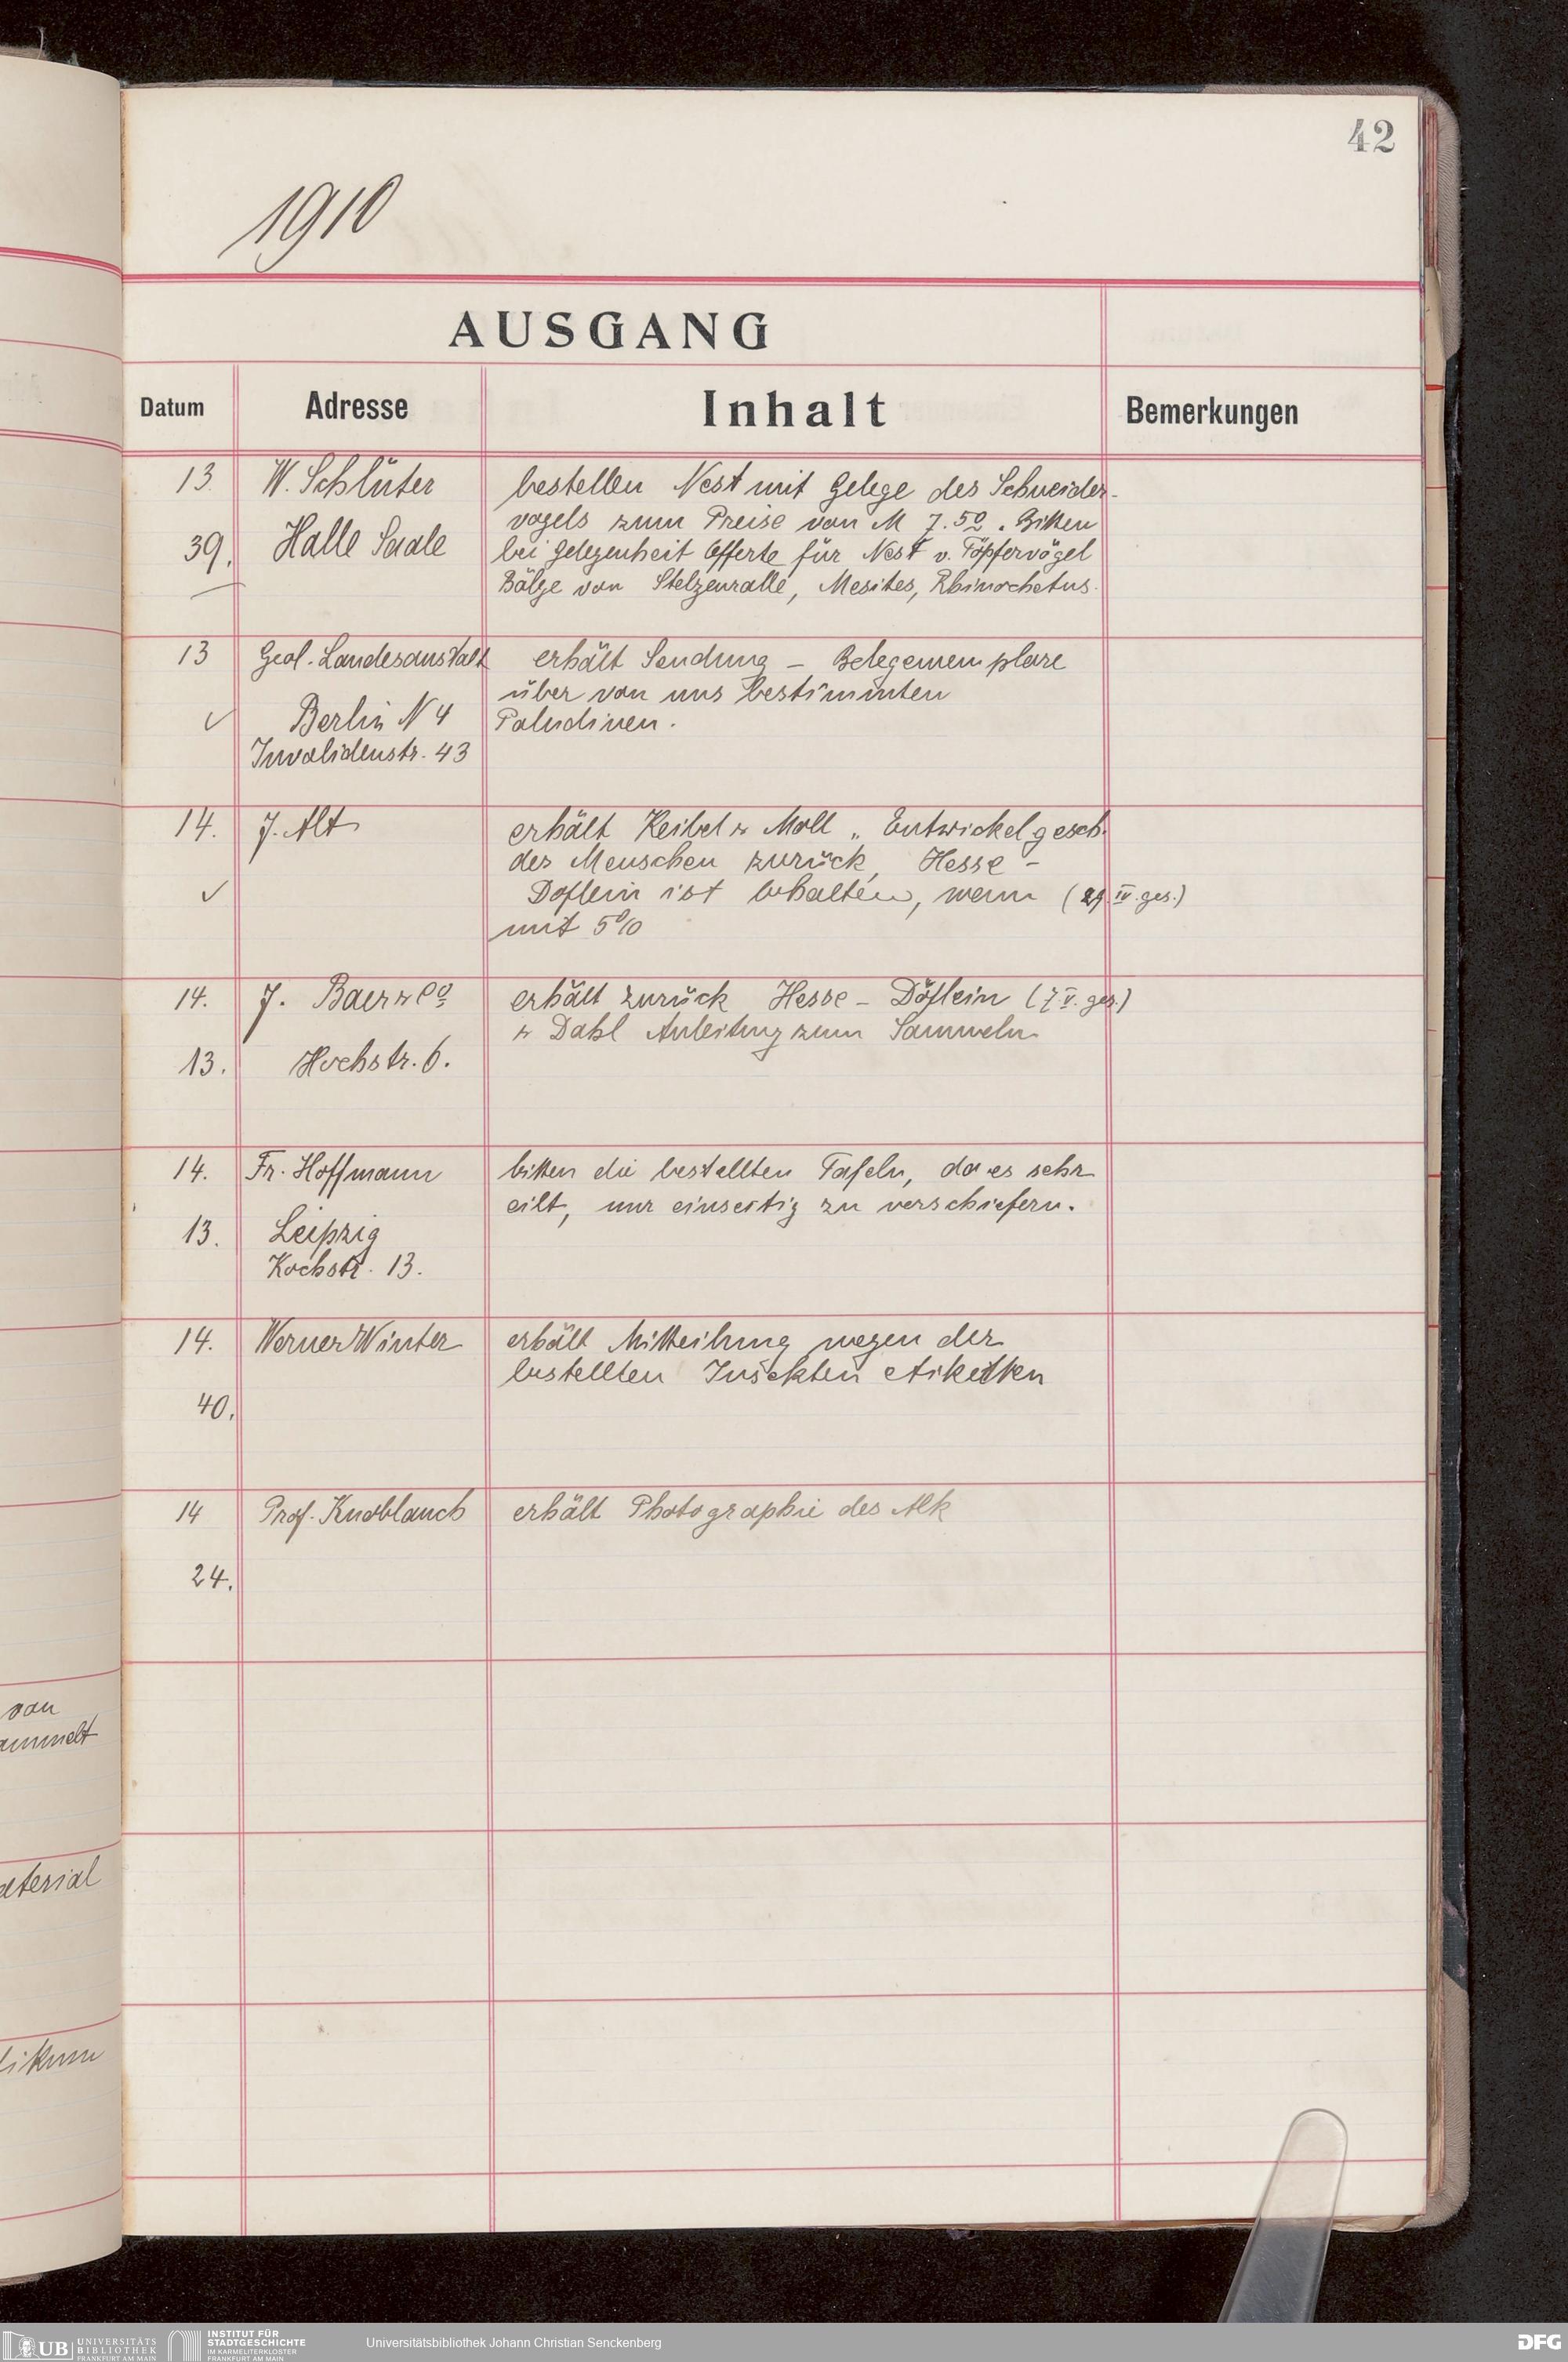 42
1910
AUSGANG
Datum Adresse Inhalt Bemerkungen
13 W. Schlüter bestellen Nest mit Gelege des Schneider-
vogels zum Preise von M 7.50. Bitten
39. Halle Saale bei Gelegenheit Offerte für Nest v. Töpfervögel
Bälge von Stelzenralle, Mesites, Rhinochetus.
13 Geol. Landesanstalt erhält Sendung – Belegexemplare
über von uns bestimmten
✓ Berlin N 4 Paludinen.
Invalidenstr. 43
14. J. Alt erhält Keibel & Moll „Entwickelgesch.
des Menschen zurück, Hesse –
✓ Doflein ist behalten, wenn (29 IV. ges.)
mit 5%
14. J. Baer & Co erhält zurück Hesse – Döflein (7 V. ges.)
& Dahl Anleitung zum Sammeln
13. Hochstr. 6.
14. Fr. Hoffmann bitten die bestellten Tafeln, da es sehr
eilt, nur einseitig zu verschiefern.
13. Leipzig
Kochstr. 13.
14. Werner Winter erhält Mitteilung wegen der
bestellten Insekten etiketten
40.
14 Prof. Knoblauch erhält Photographie des Alk
24.
von
ammelt
aterial
UB UNIVERSITÄTS
BIBLIOTHEK
FRANKFURT AM MAIN
INSTITUT FÜR
STADTGESCHICHTE
IM KARMELITERKLOSTER
FRANKFURT AM MAIN
Universitätsbibliothek Johann Christian Senckenberg
DFG